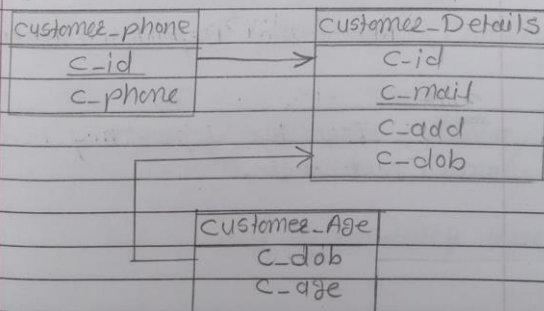 customer_phone
c_id
c_phone
customer_Details
c_id
c_mail
c_add
c_dob
customer_Age
c_dob
c_age